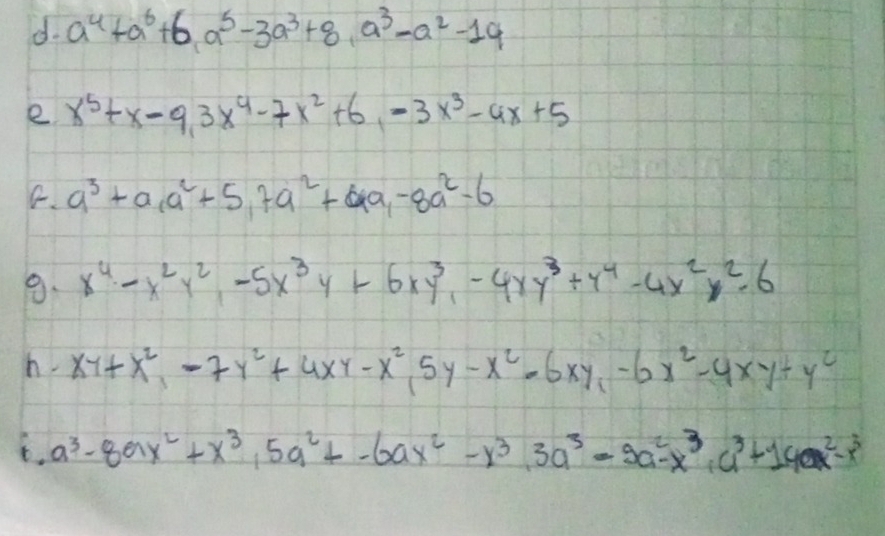 d. a⁴+a⁶+6, a⁵-3a³+8, a³-a²-14
e x⁵+x-9, 3x⁴-7x²+6, -3x³-4x+5
f. a³+a, a²+5, 7a²+4a, -8a²-6
g. x⁴-x²y², -5x³y+6xy³, -4xy³+y⁴-4x²y²-6
h. xy+x², -7y²+4xy-x², 5y-x²-6xy, -6x²-4xy+y²
i. a³-8ax²+x³, 5a²+-6ax²-x³, 3a³-9a²-x³, a³+14ax²-x³